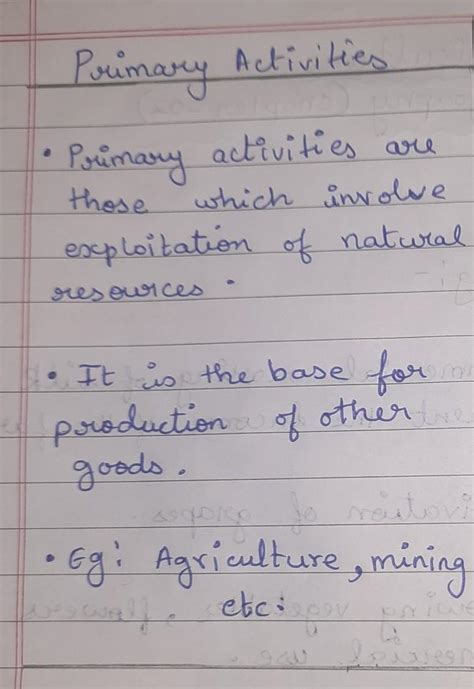 Primary Activities
• Primary activities are
those which involve
exploitation of natural
resources.
• It is the base for
production of other
goods.
• Eg: Agriculture, mining
etc.